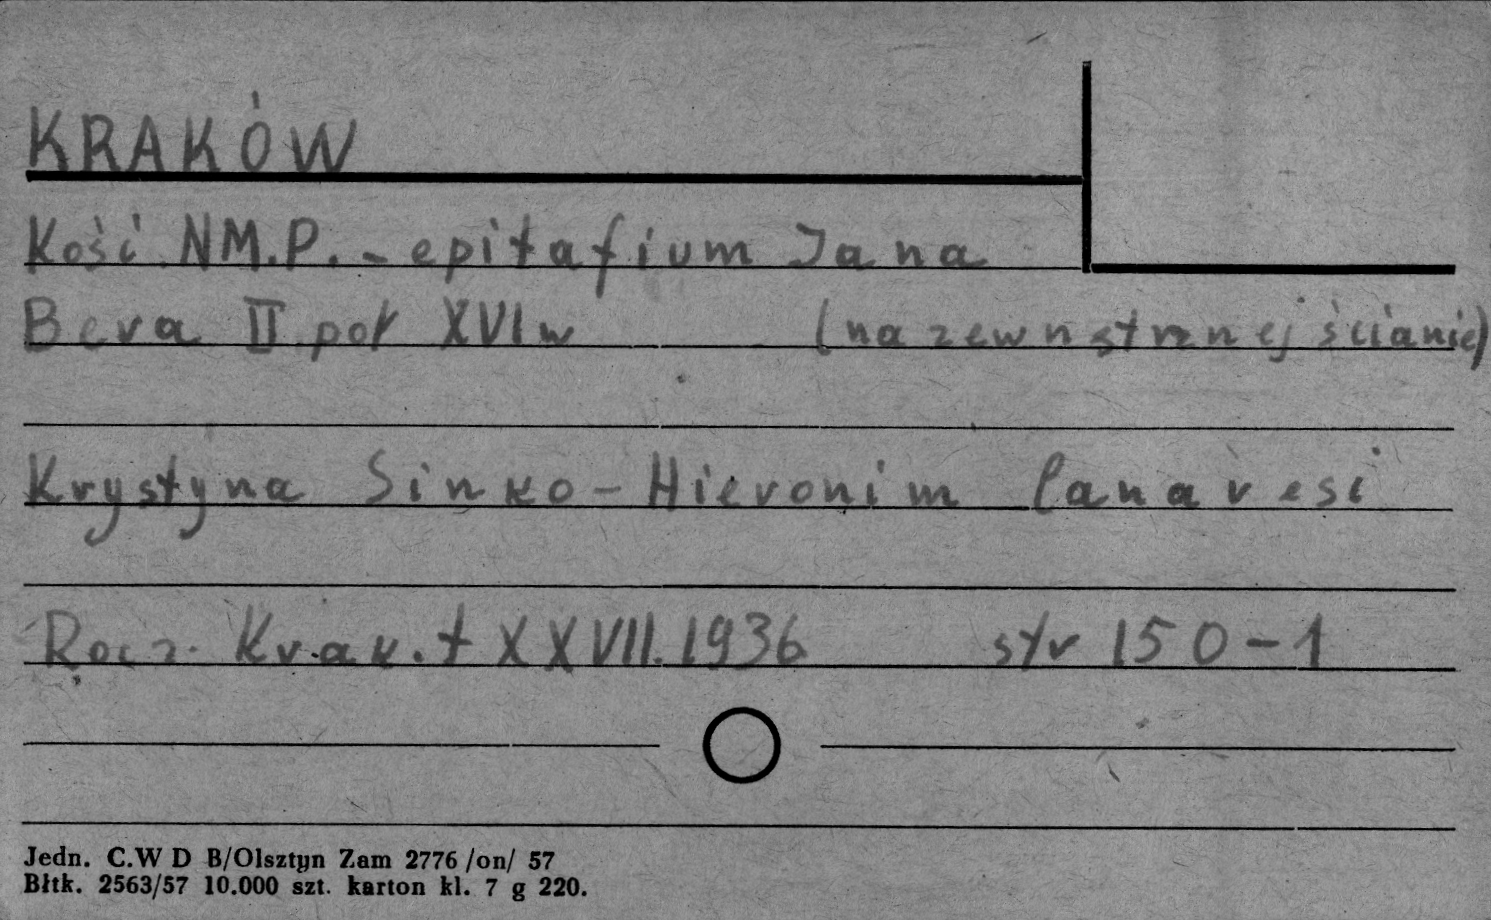 KRAKÓW
Kość. N.M.P. - epitafium Jana
Bera II poł XVI w (na zewnstrznej ścianie)
Krystyna Sinko - Hieronim Canavesi
Rocz. Krak. t XXVII. 1936 str 150-1
Jedn. C.W D B/Olsztyn Zam 2776 /on/ 57
Błtk. 2563/57 10.000 szt. karton kl. 7 g 220.